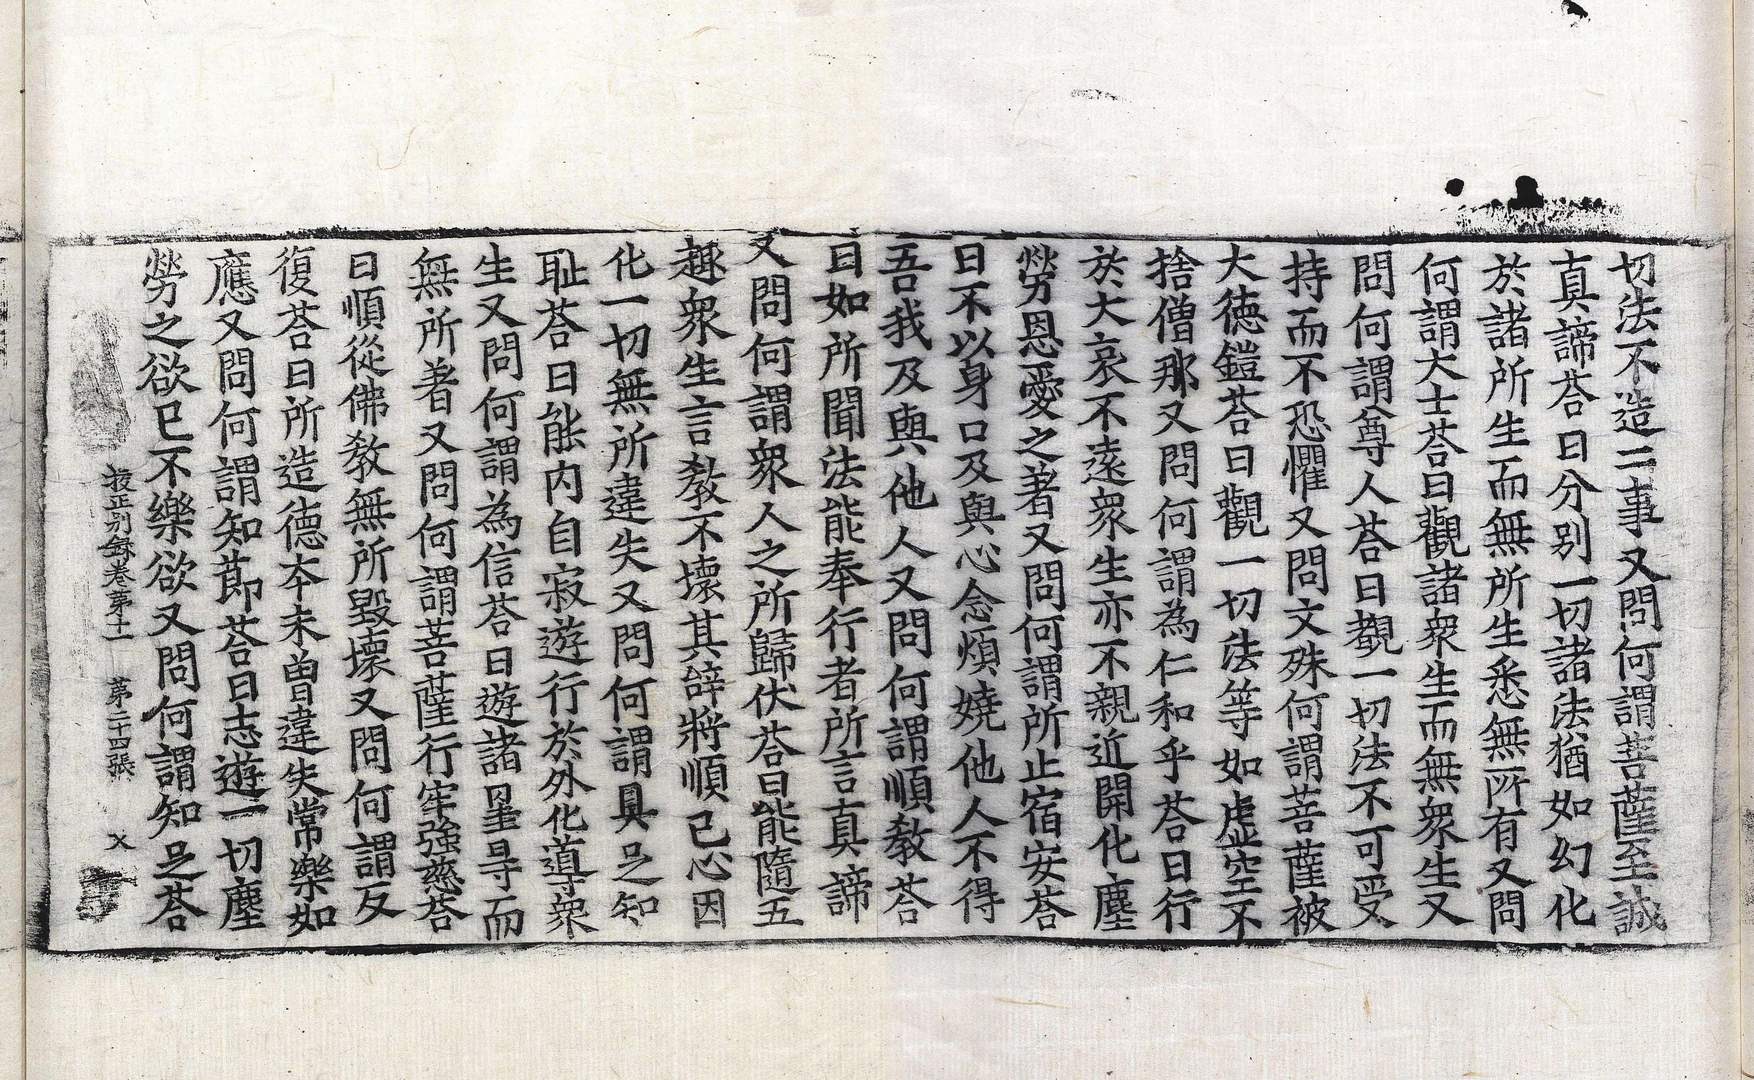 切法不造二事又問何謂菩薩至誠
真諦荅曰分別一切諸法猶如幻化
於諸所生而無所生悉無所有又問
何謂大士荅曰觀諸衆生而無衆生又
問何謂尊人荅曰覩一切法不可受
持而不恐懼又問文殊何謂菩薩被
大德鎧荅曰觀一切法等如虛空不
捨僧那又問何謂為仁和乎荅曰行
於大哀不遠衆生亦不親近開化塵
勞恩愛之著又問何謂所止宿安荅
曰不以身口及與心念煩嬈他人不得
吾我及與他人又問何謂順教荅
曰如所聞法能奉行者所言真諦
又問何謂衆人之所歸伏荅曰能隨五
趣衆生言教不壞其辞將順己心因
化一切無所違失又問何謂具足知
耻荅曰能内自寂遊行於外化導衆
生又問何謂為信荅曰遊諸量导而
無所著又問何謂菩薩行牢強慈荅
曰順從佛教無所毀壞又問何謂反
復荅曰所造德夲未曾違失常樂如
應又問何謂知莭荅曰志遊一切塵
勞之欲已不樂欲又問何謂知足荅
挍正别錄卷苐十一 苐二十四張